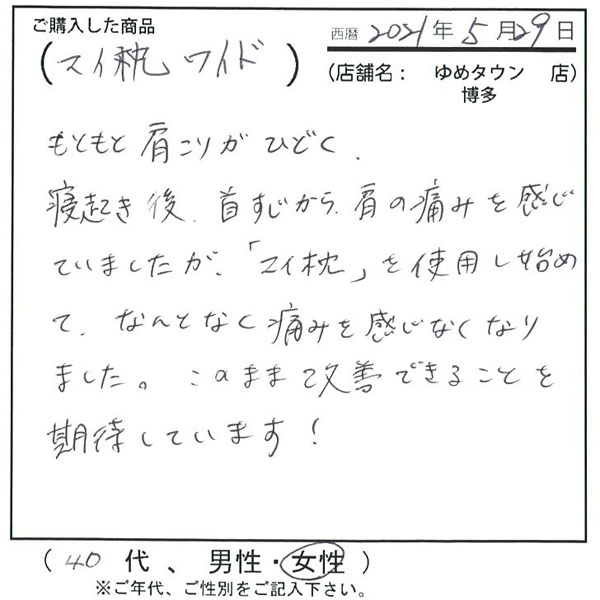 ご購入した商品
(マイ枕 ワイド)
西暦 2021年5月29日
(店舗名： ゆめタウン 店)
博多
もともと肩こりがひどく、
寝起き後、首すじから、肩の痛みを感じ
ていましたが、「マイ枕」を使用し始め
て、なんとなく痛みを感じなくなり
ました。このまま改善できることを
期待しています！
(40 代 、 男性・女性 )
※ご年代、ご性別をご記入下さい。